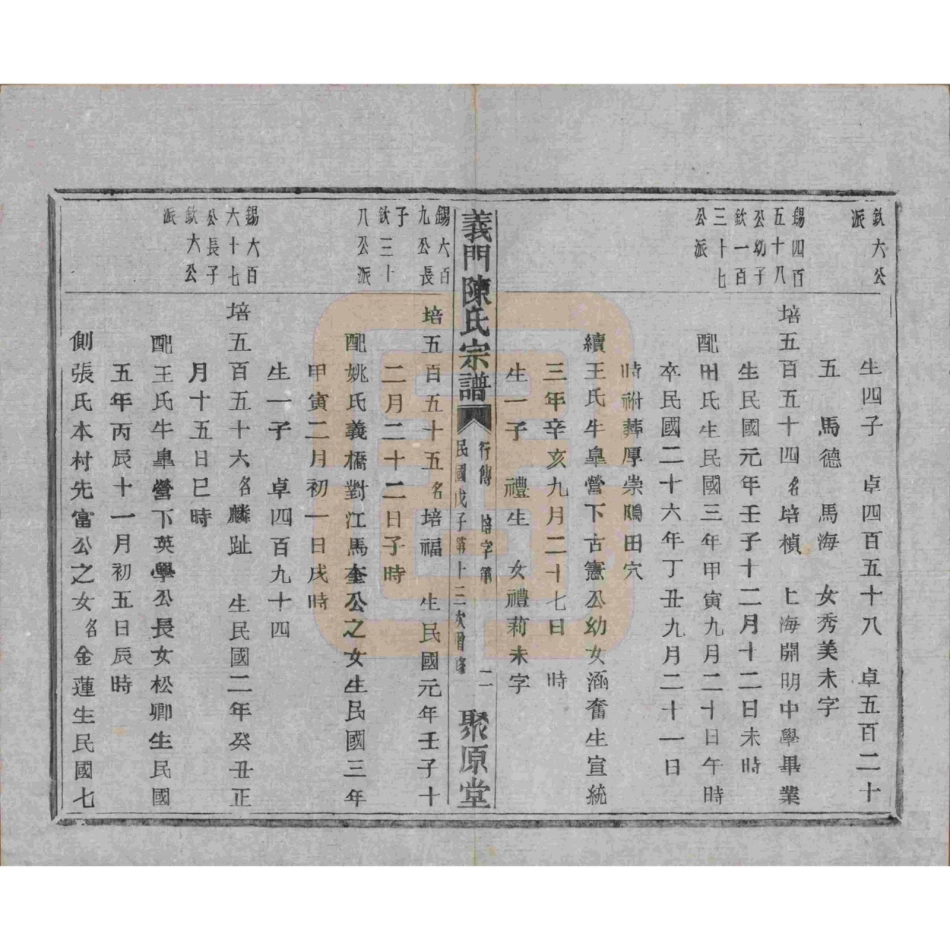 欽六公
派
生四子　卓四百五十八　卓五百二十
五　馬德　馬海　女秀美未字
錫四百
五十八
公幼子
欽一百
三十七
公派
培五百五十四名培楨　上海開明中學畢業
生民國元年壬子十二月十二日未時
配田氏生民國三年甲寅九月二十日午時
卒民國二十六年丁丑九月二十一日
時祔葬厚崇隝田穴
續王氏牛臯營下古憲公幼女涵奮生宣統
三年辛亥九月二十七日　時
生一子　禮生　女禮莉未字
義門陳氏宗譜
行傳　培字第　二
民國戊子第十三次增修
聚原堂
錫六百
九公長
子
欽三十
八公派
培五百五十五名培福　生民國元年壬子十
二月二十二日子時
配姚氏義橋對江馬奎公之女生民國三年
甲寅二月初一日戌時
生一子　卓四百九十四
錫六百
六十七
公長子
欽六公
派
培五百五十六名麟趾　生民國二年癸丑正
月十五日巳時
配王氏牛臯營下英學公長女松卿生民國
五年丙辰十一月初五日辰時
側張氏本村先富公之女名金蓮生民國七